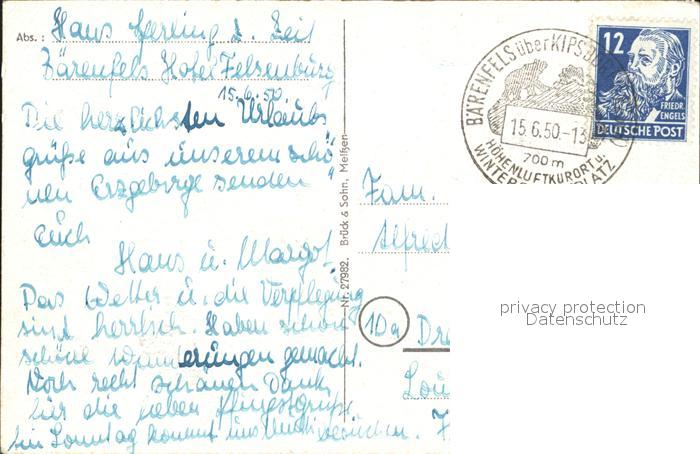 Abs.: Hans Herling z. Zeit
Bärenfels Hotel Felsenburg
15.6.50
Die herzlichsten Urlaubs
grüße aus unserem schö
nen Erzgebirge senden
Euch
Hans u. Margot
Das Wetter u. die Verpflegung
sind herrlich. Haben schon
schöne Wanderungen gemacht.
Noch recht schönen Dank
für die lieben Pfingstgrüße.
Am Sonntag kommt uns Mutti besuchen.
Nr. 27982. Brück & Sohn, Meißen
BÄRENFELS über KIPSDORF
15.6.50.-13
700 m
HÖHENLUFTKURORT u.
WINTERSPORTPLATZ
12
FRIEDR. ENGELS
DEUTSCHE POST
Fam.
Alfred
10a Dre
privacy protection
Datenschutz